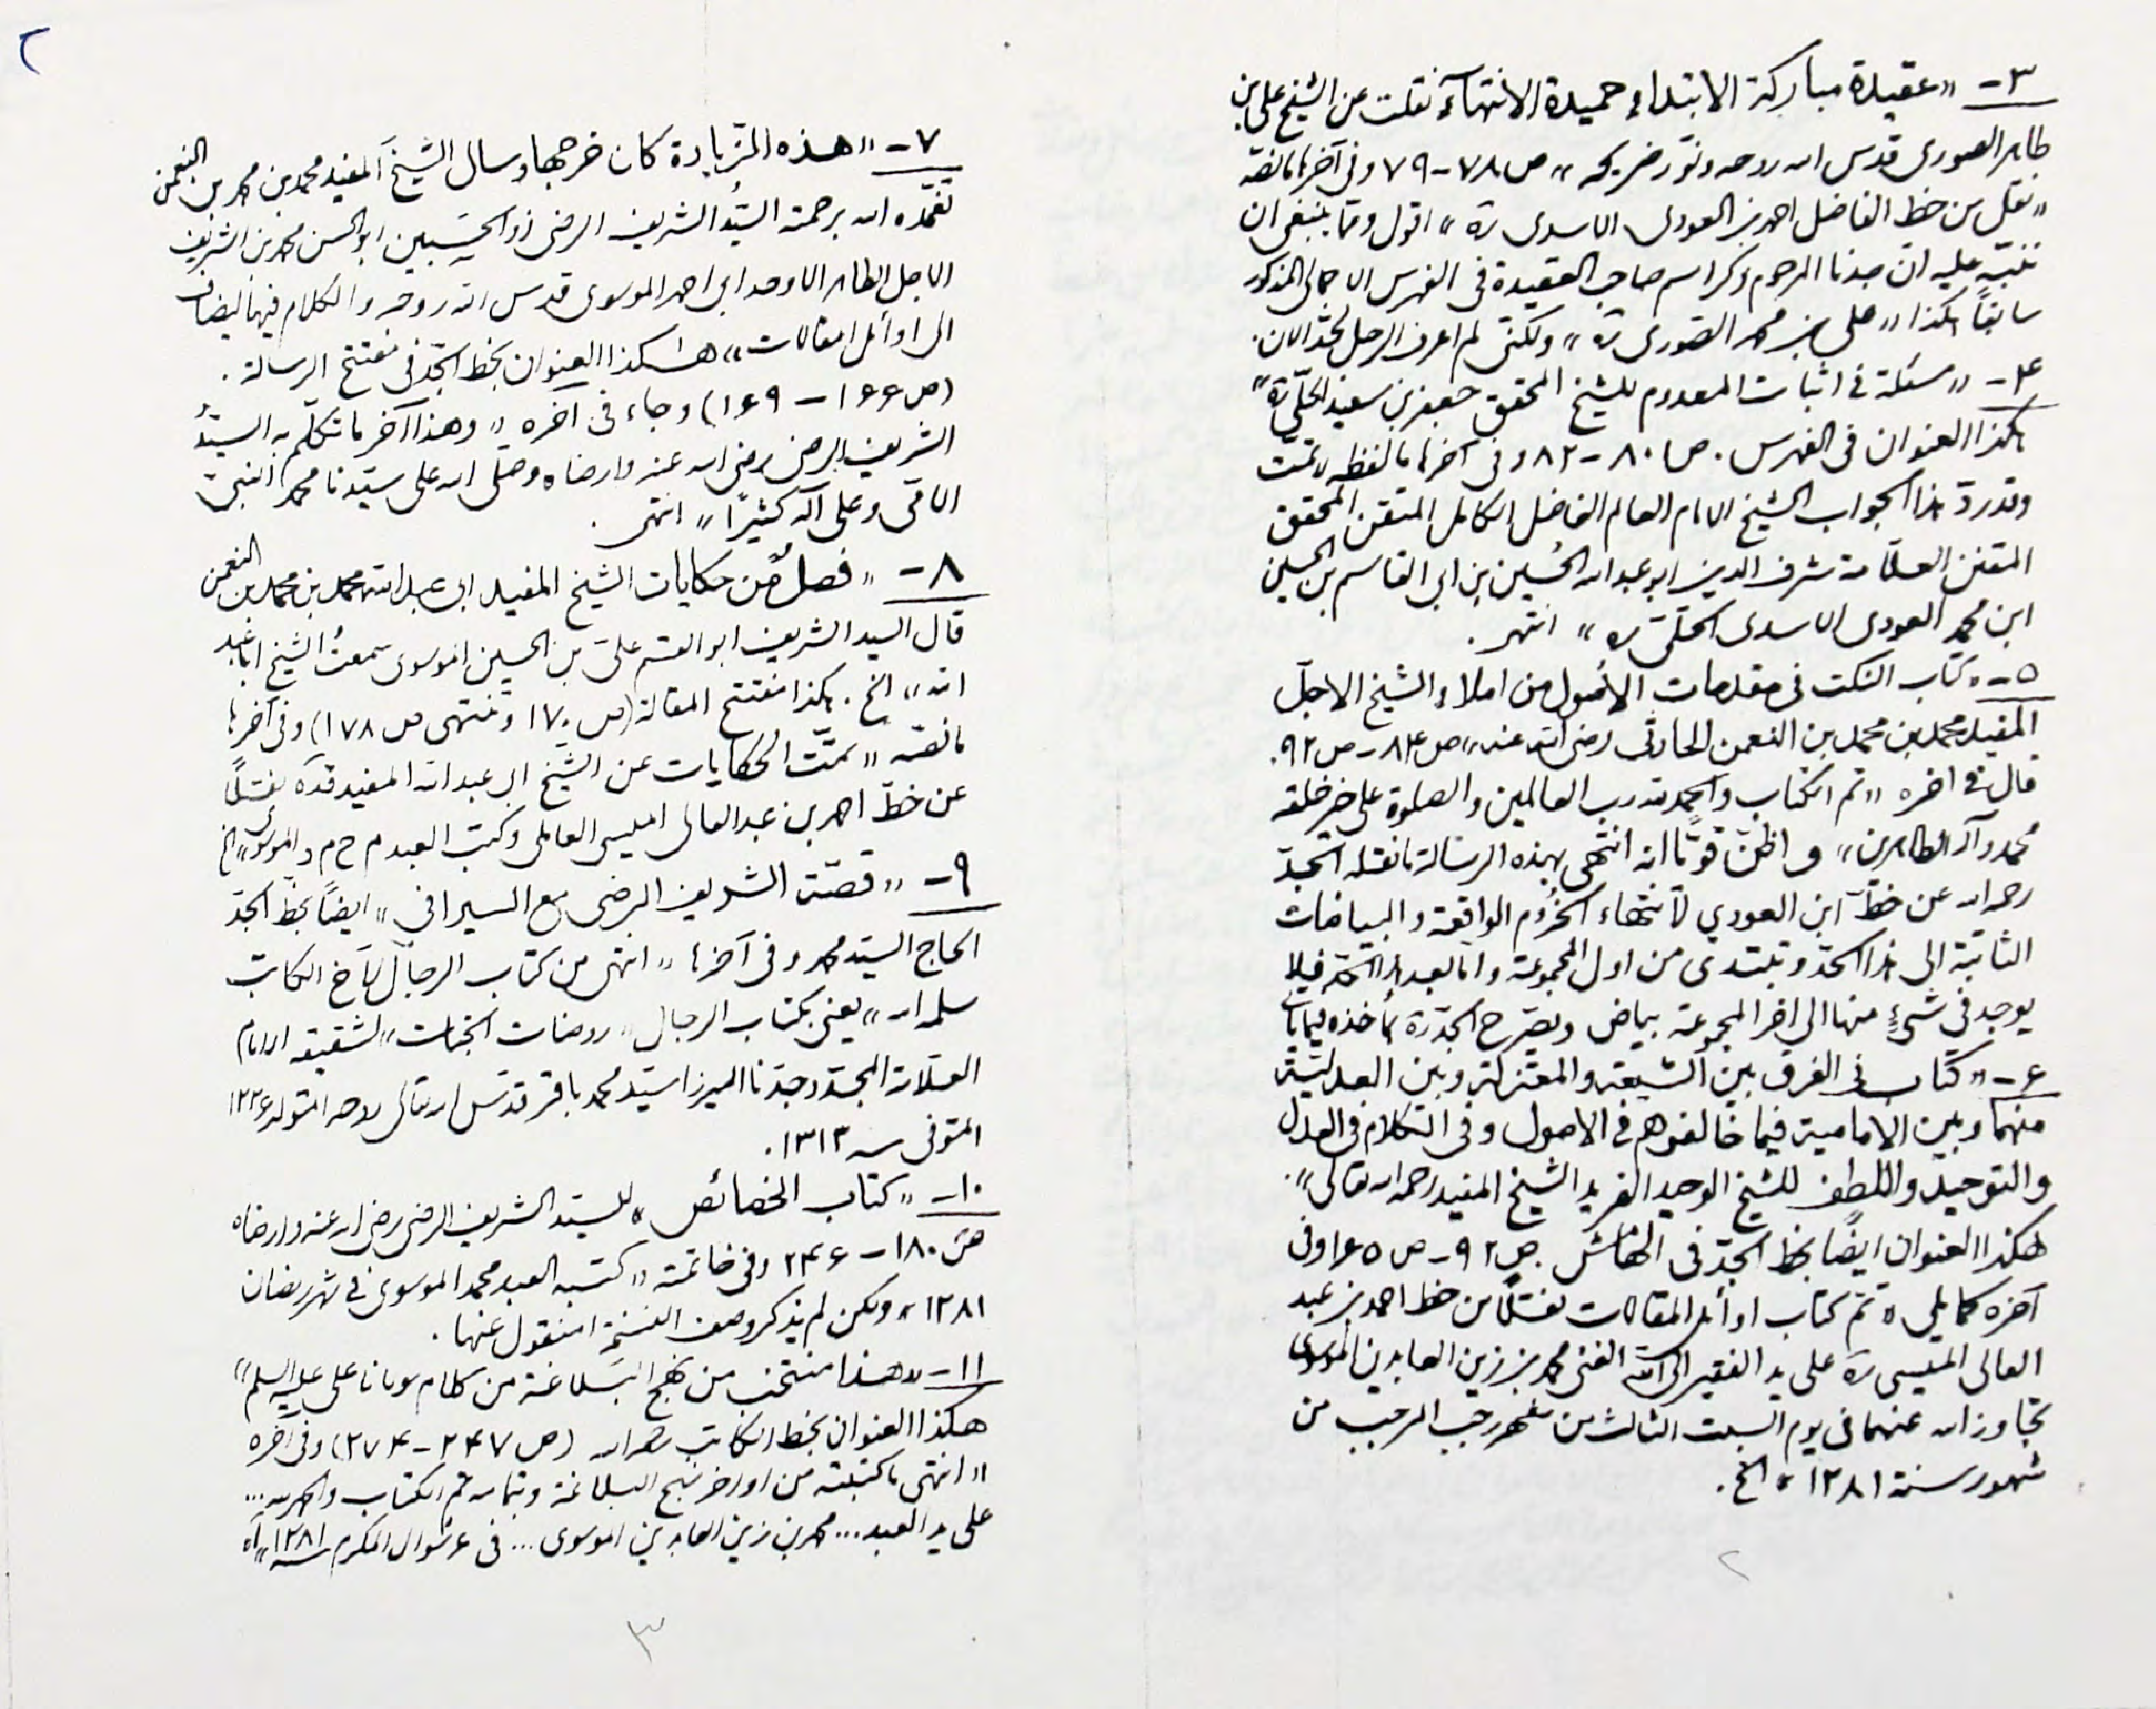 ٢
٣- «عقيدة مباركة الابتداء حميدة الانتهاء نقلت عن الشيخ على بن
طاهر الصورى قدس الله روحه ونور ضريحه» ص ٧٨-٧٩ وفى آخرها ما نصّه
«نقل من خط الفاضل احمد بن العودى الاسدى ره» اقول ومما ينبغى ان
ننبّه عليه ان جدنا المرحوم ذكر اسم صاحب العقيدة فى الفهرس الاجمالى المذكور
سابقاً هكذا «على بن محمد الصورى ره» ولكنى لم اعرف الرجل لحدّ الان.
۴- «مسئلة فى اثبات المعدوم للشيخ المحقق جعفر بن سعيد الحلّى ره»
هكذا العنوان فى الفهرس. ص ٨٠-٨٢ وفى آخرها ما لفظه «تمّت
وقد ردّ هذا الجواب الشيخ الامام العالم الفاضل الكامل المتقن المحقق
المتفنن العلّامة شرف الدين ابو عبد الله الحُسين بن ابى القاسم بن الحسين
ابن محمد العودى الاسدى الحلّى ره» انتهى.
٥- «كتاب النكت فى مقدمات الأصول من املاء الشيخ الاجلّ
المفيد محمد بن محمد بن النعمن الحارثى رضى الله عنه» ص ٨۴-ص ٩٢.
قال فى اخره «تم الكتاب والحمد لله رب العالمين والصلوة على خير خلقه
محمد وآله الطاهرين» و اظنّ قويّاً انه انتهى بهذه الرسالة ما نقله الجدّ
رحمه الله عن خطّ ابن العودي لأنتهاء الخروم الواقعة والبياضات
الثابتة الى هذا الحدّ وتبتدى من اول المجموعة واما بعد هذا الحدّ فلا
يوجد فى شىءٍ منها الى اخر المجموعة بياض ويصرّح الجدّ ره بمأخذه
۶- «كتاب فى الفرق بين الشيعة والمعتزلة وبين العدليّة
منهما وبين الامامية فيما خالفوهم فى الاصول وفى الكلام فى العدل
والتوحيد واللطف للشيخ الوحيد الفريد الشيخ المفيد رحمه الله تعالى».
هكذا العنوان ايضاً بخط الجدّ فى الهامش. ص ٩٢-ص ١۶٥ وفى
آخره كما يلى «تم كتاب اوائل المقالات نقلاً من خط احمد بن عبد
العالى الميسى ره على يد الفقير الى الله الغنى محمد بن زين العابدين الموسوى
تجاوز الله عنهما فى يوم السبت الثالث من شهر رجب المرجب من
شهور سنة ١٢٨١» الخ.
٢
٧- «هذه الزّيادة كان خرجها وسال الشيخ المفيد محمد بن محمد بن النعمن
تغمّده الله برحمته السيّد الشريف الرضى ذو الحسبين ابو الحسن محمد بن الشريف
الاجل الطاهر الاوحد ابى احمد الموسوى قدس الله روحه والكلام فيها ليضاف
الى اوائل المقالات» هٰكذا العنوان بخط الجدّ فى مفتتح الرسالة.
(ص ١۶۶-١۶٩) وجاء فى آخره «وهذا آخر ما تكلّم به السيّد
الشريف الرضى رضى الله عنه وارضاه وصلّى الله على سيّدنا محمد النبىّ
الامّى وعلى آله كثيرًا» انتهى.
٨- «فصلٌ من حكايات الشيخ المفيد ابى عبد الله محمد بن محمد بن النعمن
قال السيد الشريف ابو القسم علىّ بن الحسين الموسوى سمعتُ الشيخ ابا عبد
الله» الخ. هكذا مفتتح المقالة (ص ١٧٠ وتنتهى ص ١٧٨) وفى آخرها
ما نصّه «تمّت الحكايات عن الشيخ ابى عبد الله المفيد قده نقلاً
عن خطّ احمد بن عبد العالى الميسى العاملى وكتب العبد م ح م د الموسوى» الخ
٩- «قصّة الشريف الرضى مع السيرافى» ايضاً بخط الجدّ
الحاج السيّد محمد وفى آخرها «انتهى من كتاب الرجال لأخ الكاتب
سلمه الله» يعنى بكتاب الرجال «روضات الجنات» لشقيقه الامام
العلّامة المجدّد جدّنا الميرزا سيّد محمد باقر قدّس الله تعالى روحه المتولد ١٢٢۶
المتوفى سنه ١٣١٣.
١٠- «كتاب الخصائص» للسيّد الشريف الرضى رضى الله عنه وارضاه
ص ١٨٠-٢۴۶ وفى خاتمته «كتبه العبد محمد الموسوى فى شهر رمضان
١٢٨١» ولكن لم يذكر وصف النسخة المنقول عنها.
١١- «هذا منتخب من نهج البَلاغة من كلام مولانا على عليه السلم»
هكذا العنوان بخط الكاتب رحمه الله (ص ٢۴٧-٢٧۴) وفى آخره
«انتهى ما كتبته من اواخر نهج البلاغة وبتمامه تم الكتاب والحمد لله...
على يد العبد... محمد بن زين العابدين الموسوى... فى ع شوال المكرم سنه ١٢٨١» اه
٣